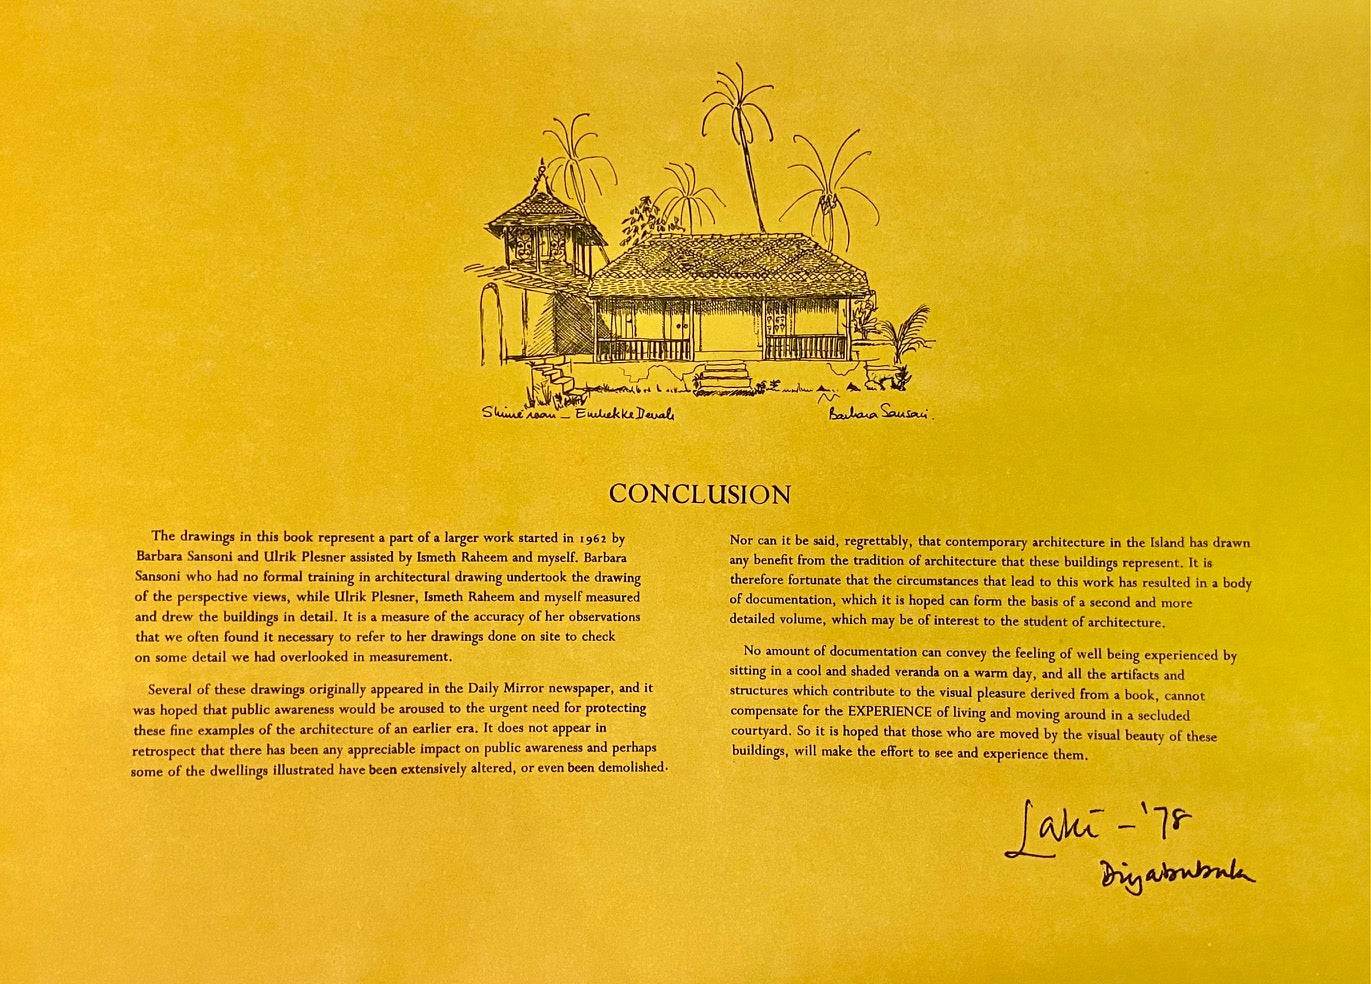 Shrine room – Embekke Devale
Barbara Sansoni.
CONCLUSION
The drawings in this book represent a part of a larger work started in 1962 by
Barbara Sansoni and Ulrik Plesner assisted by Ismeth Raheem and myself. Barbara
Sansoni who had no formal training in architectural drawing undertook the drawing
of the perspective views, while Ulrik Plesner, Ismeth Raheem and myself measured
and drew the buildings in detail. It is a measure of the accuracy of her observations
that we often found it necessary to refer to her drawings done on site to check
on some detail we had overlooked in measurement.
Several of these drawings originally appeared in the Daily Mirror newspaper, and it
was hoped that public awareness would be aroused to the urgent need for protecting
these fine examples of the architecture of an earlier era. It does not appear in
retrospect that there has been any appreciable impact on public awareness and perhaps
some of the dwellings illustrated have been extensively altered, or even been demolished.
Nor can it be said, regrettably, that contemporary architecture in the Island has drawn
any benefit from the tradition of architecture that these buildings represent. It is
therefore fortunate that the circumstances that lead to this work has resulted in a body
of documentation, which it is hoped can form the basis of a second and more
detailed volume, which may be of interest to the student of architecture.
No amount of documentation can convey the feeling of well being experienced by
sitting in a cool and shaded veranda on a warm day, and all the artifacts and
structures which contribute to the visual pleasure derived from a book, cannot
compensate for the EXPERIENCE of living and moving around in a secluded
courtyard. So it is hoped that those who are moved by the visual beauty of these
buildings, will make the effort to see and experience them.
Laki – '78
Diyabubula